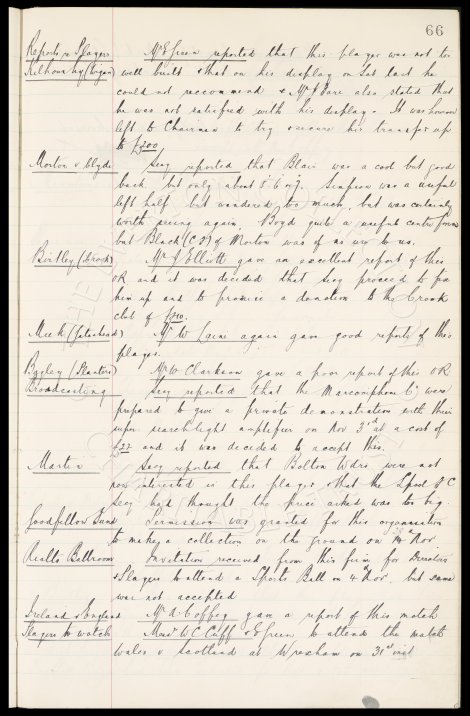 66
Reports re Players Mr E Green reported that this player was not too
Kilhourhy (Wigan) well built & that on his display on Sat last he
could not reccommend & Mr J Sare also stated that
he was not satisfied with his display. It was however
left to Chairman to try & secure his transfer up
to £300.
Morton v Clyde Secy reported that Blair was a cool but good
back but only about 5.6 or 7. Simpson was a useful
left half but wandered too much, but was certainly
worth seeing again, Boyd quite a useful centre forwd
but Black (C F) of Morton was of no use to us.
Birtley (Crook) Mr J Elliott gave an excellent report of this
OR and it was decided that Secy proceed to fix
him up and to promise a donation to the Crook
club of £10.
Meek (Gateshead) Mr W again gave good reports of this
player.
(Stanton) Mr W Clarkson gave a poor report of this OR
Broadcasting Secy reported that the Marconiphone Co were
prepared to give a private demonstration with their
super searchlight amplifier on Nov 3rd at a cost of
and it was decided to accept this.
Martin Secy reported that Bolton Wdrs were not
now interested in this player & that the Lpool F C
Secy had thought the price asked was too big.
Goodfellow Fund Permission was granted for this organisation
to make a collection on the ground on Nov
Rialto Ballroom Invitation received from this firm for Directors
& Players to attend a Sports Ball on 4th Nov. but same
was not accepted
Ireland v England Mr A Coffey gave a report of this match
Players to watch Messrs W C Cuff & E Green to attend the match
Wales v Scotland at Wrexham on 31st inst